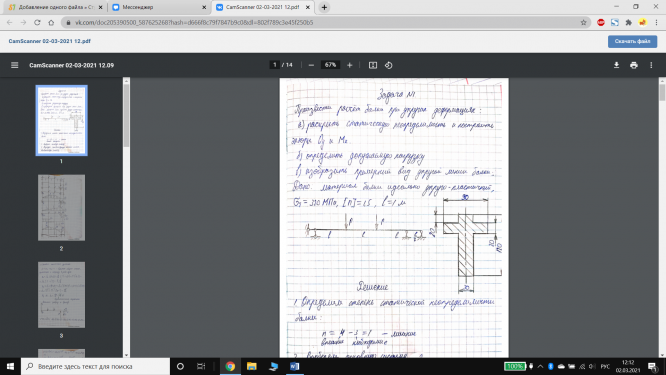 Добавление одного файла » Ст
Мессенджер
CamScanner 02-03-2021 12.pdf
vk.com/doc205390500_587625268?hash=d666f8c79f7847b9c0&dl=802f789c3a45f250b5
CamScanner 02-03-2021 12.pdf
Скачать файл
CamScanner 02-03-2021 12.09
1 / 14
67%
1
2
3
Задача №1
Произвести расчёт балки при упругих деформациях:
а) раскрыть статическую неопределимость и построить
эпюры Qy и Mx
б) определить допускаемую нагрузку
в) изобразить примерный вид упругой линии балки.
Дано: материал балки идеально упруго-пластичный,
l = 1 м
P P
l l l
Решение
1. Определим степень статической неопределимости
балки:
n = 4 - 3 = 1
Введите здесь текст для поиска
100%
РУС
12:12
02.03.2021